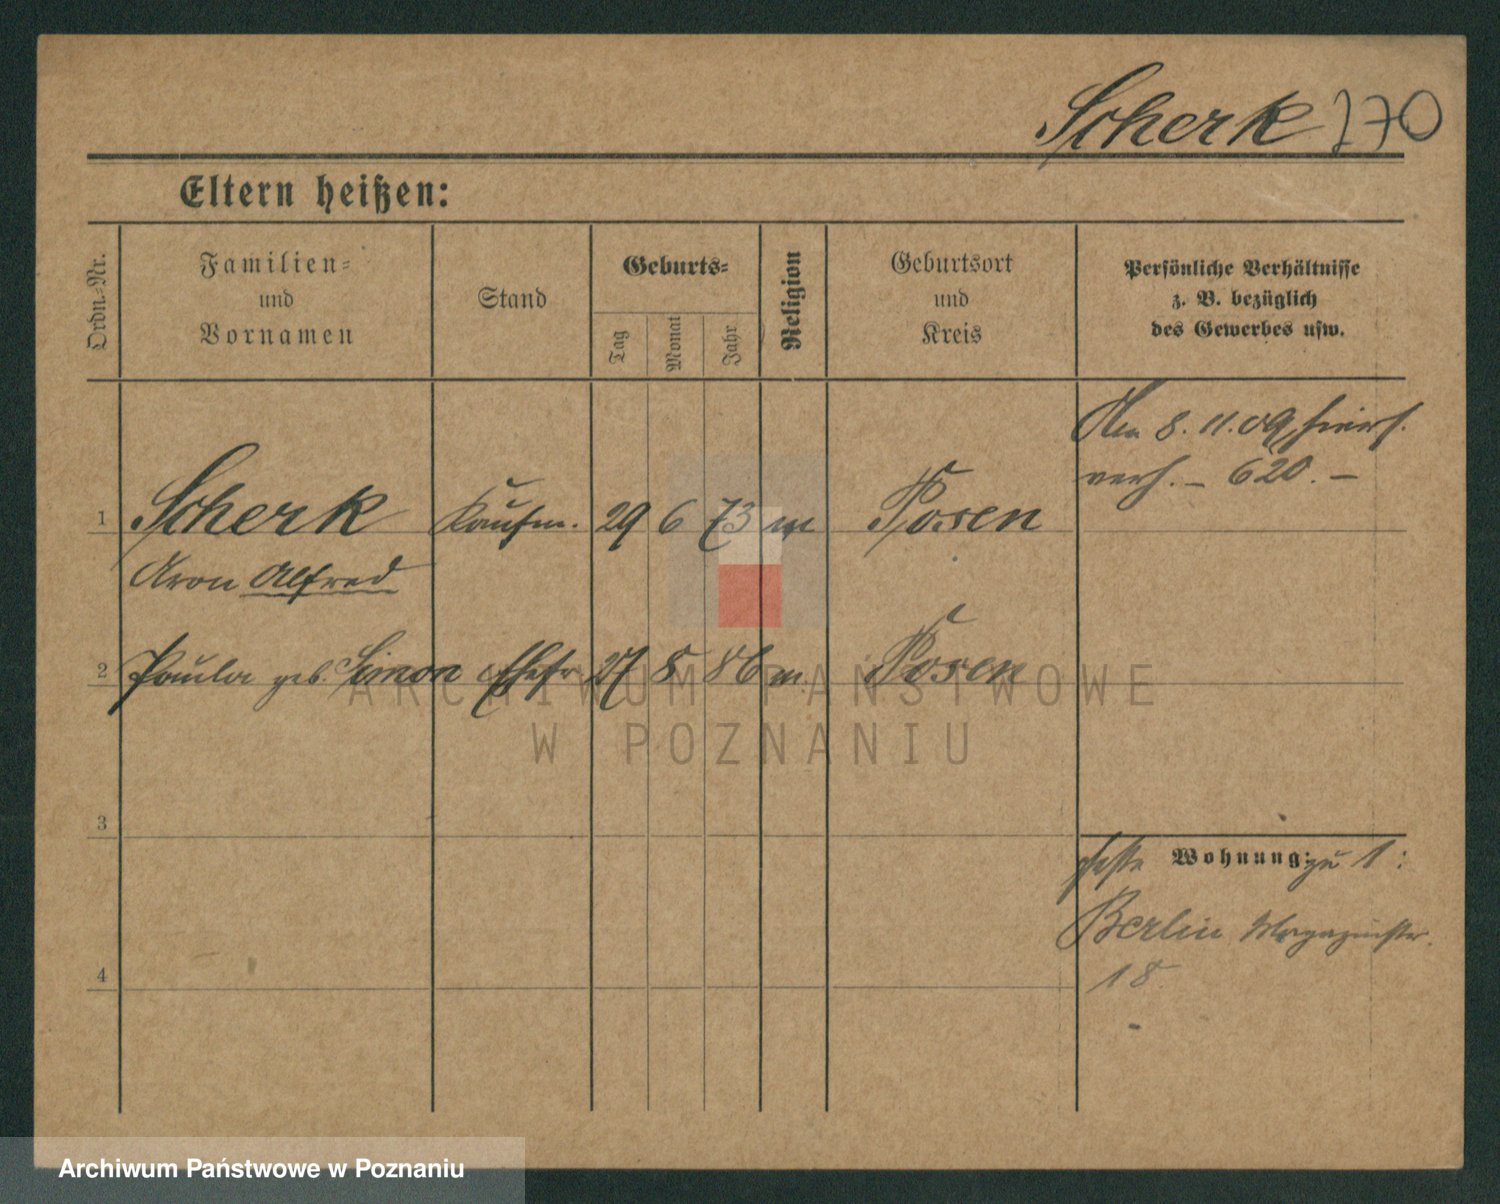 Scherk 270
Eltern heißen:
Ordn.-Nr.
Familien-
und
Vornamen
Stand
Geburts-
Tag
Monat
Jahr
Religion
Geburtsort
und
Kreis
Persönliche Verhältnisse
z. B. bezüglich
des Gewerbes usw.
Am 8.11.09 hiers.
verh. – 620. –
1 Scherk Kaufm. 29 6 73 m Posen
Aron Alfred
2 Paula geb. Simon Ehefr 27 8 86 m. Posen
ARCHIWUM PAŃSTWOWE
W POZNANIU
3
Wohnung: zu 1:
Berlin Magazinstr.
4
18.
Archiwum Państwowe w Poznaniu